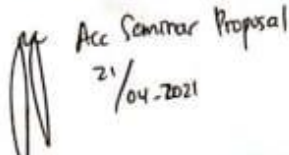 Acc Seminar Proposal
21/04-2021